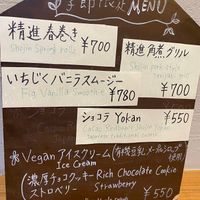 季節限定 MENU
精進春巻き
Shojin Spring rolls
¥700
精進角煮グリル
Shojin pork style
¥700
いちじくバニラスムージー
Fig Vanilla Smoothie
¥780
ショコラ Yokan
¥550
Vegan アイスクリーム
Ice Cream
濃厚チョコクッキー Rich Chocolate Cookie
ストロベリー Strawberry
¥550